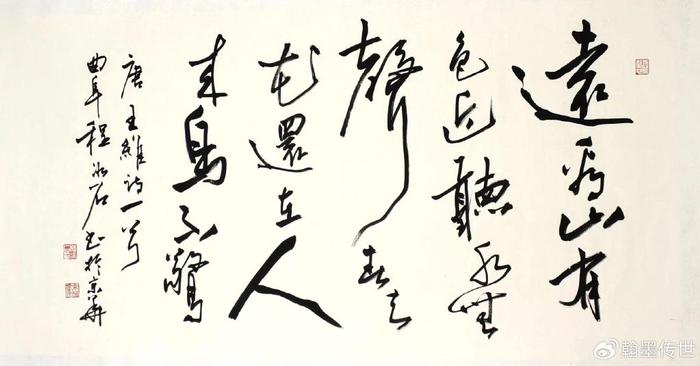 遠看山有
色近聽水無
聲春去
花還在人
来鳥不驚
唐王維诗一首
曲阜程石书於京華
@翰墨传世